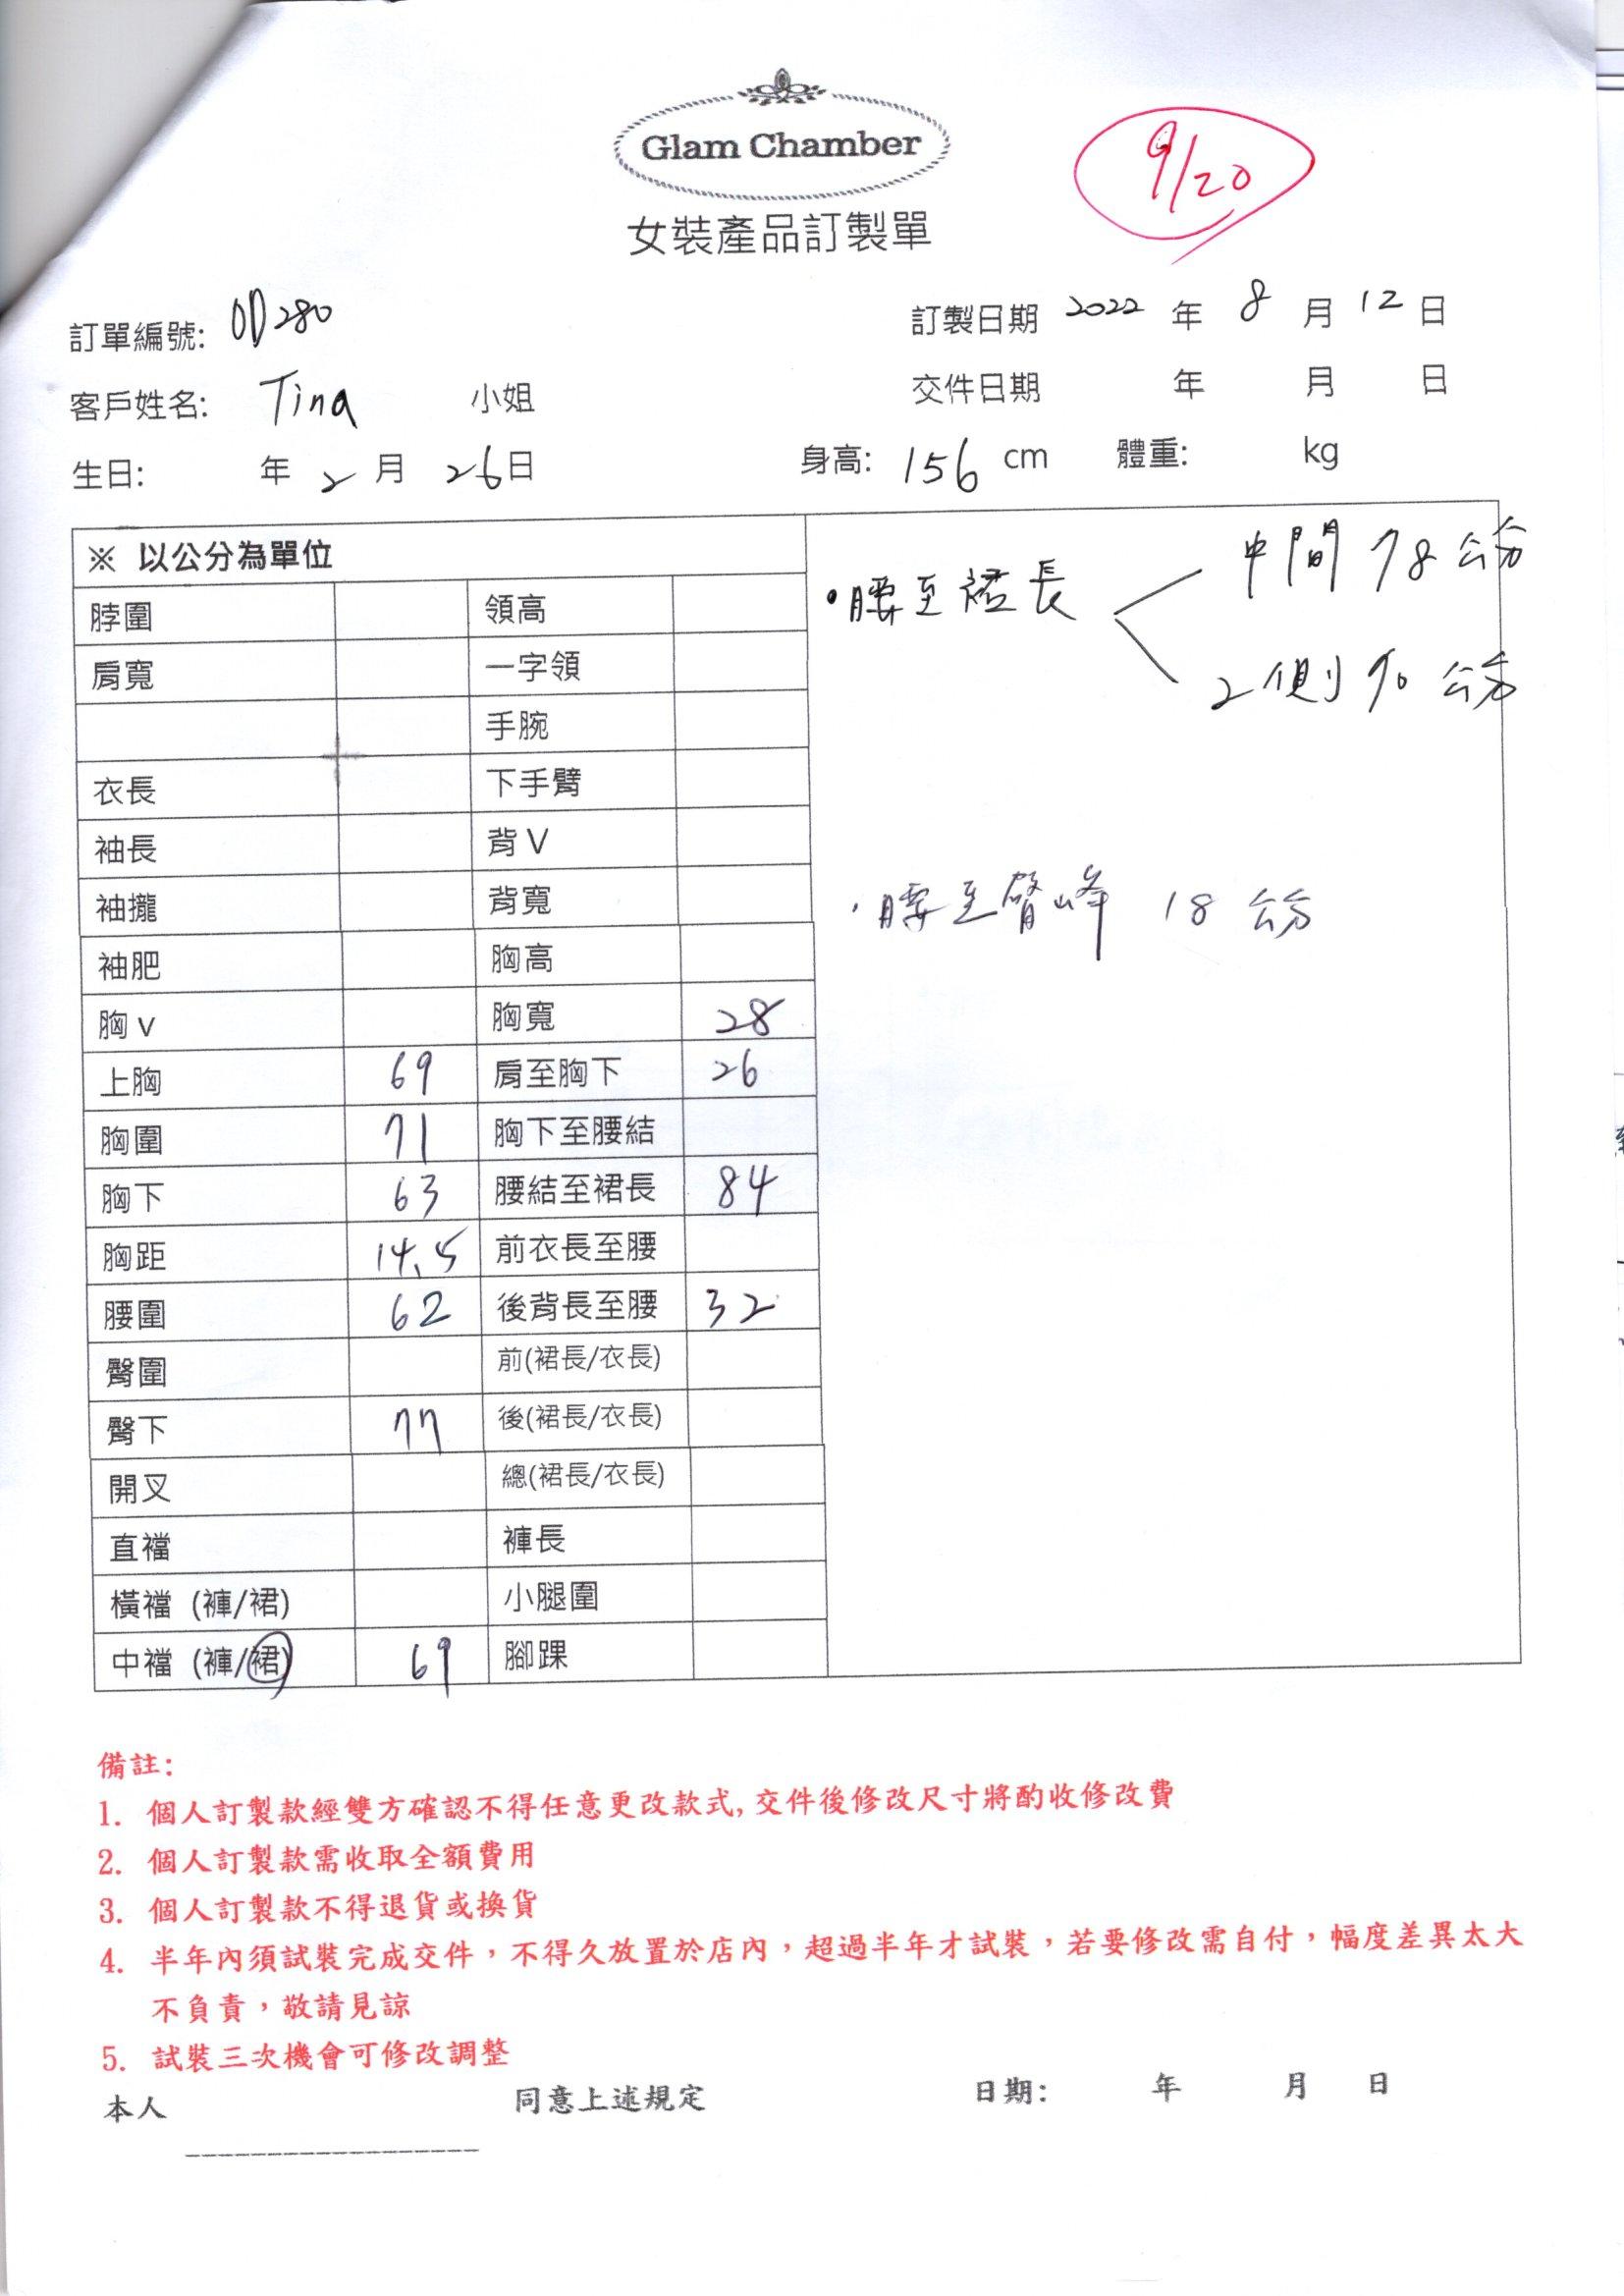 Glam Chamber
9/20
女裝產品訂製單
訂單編號: OD280
訂製日期 2022 年 8 月 12 日
客戶姓名: Tina 小姐
交件日期 年 月 日
生日: 年 2 月 26 日
身高: 156 cm 體重: kg
※ 以公分為單位
脖圍 領高
肩寬 一字領
手腕
衣長 下手臂
袖長 背 V
袖攏 背寬
袖肥 胸高
胸 v 胸寬 28
上胸 69 肩至胸下 26
胸圍 71 胸下至腰結
胸下 63 腰結至裙長 84
胸距 14.5 前衣長至腰
腰圍 62 後背長至腰 32
臀圍 前(裙長/衣長)
臀下 77 後(裙長/衣長)
開叉 總(裙長/衣長)
直襠 褲長
橫襠 (褲/裙) 小腿圍
中襠 (褲/裙) 69 腳踝
•腰至裙長
中間 78 公分
2側 90 公分
•腰至臀峰 18 公分
備註:
1. 個人訂製款經雙方確認不得任意更改款式, 交件後修改尺寸將酌收修改費
2. 個人訂製款需收取全額費用
3. 個人訂製款不得退貨或換貨
4. 半年內須試裝完成交件，不得久放置於店內，超過半年才試裝，若要修改需自付，幅度差異太大
不負責，敬請見諒
5. 試裝三次機會可修改調整
本人 同意上述規定 日期: 年 月 日